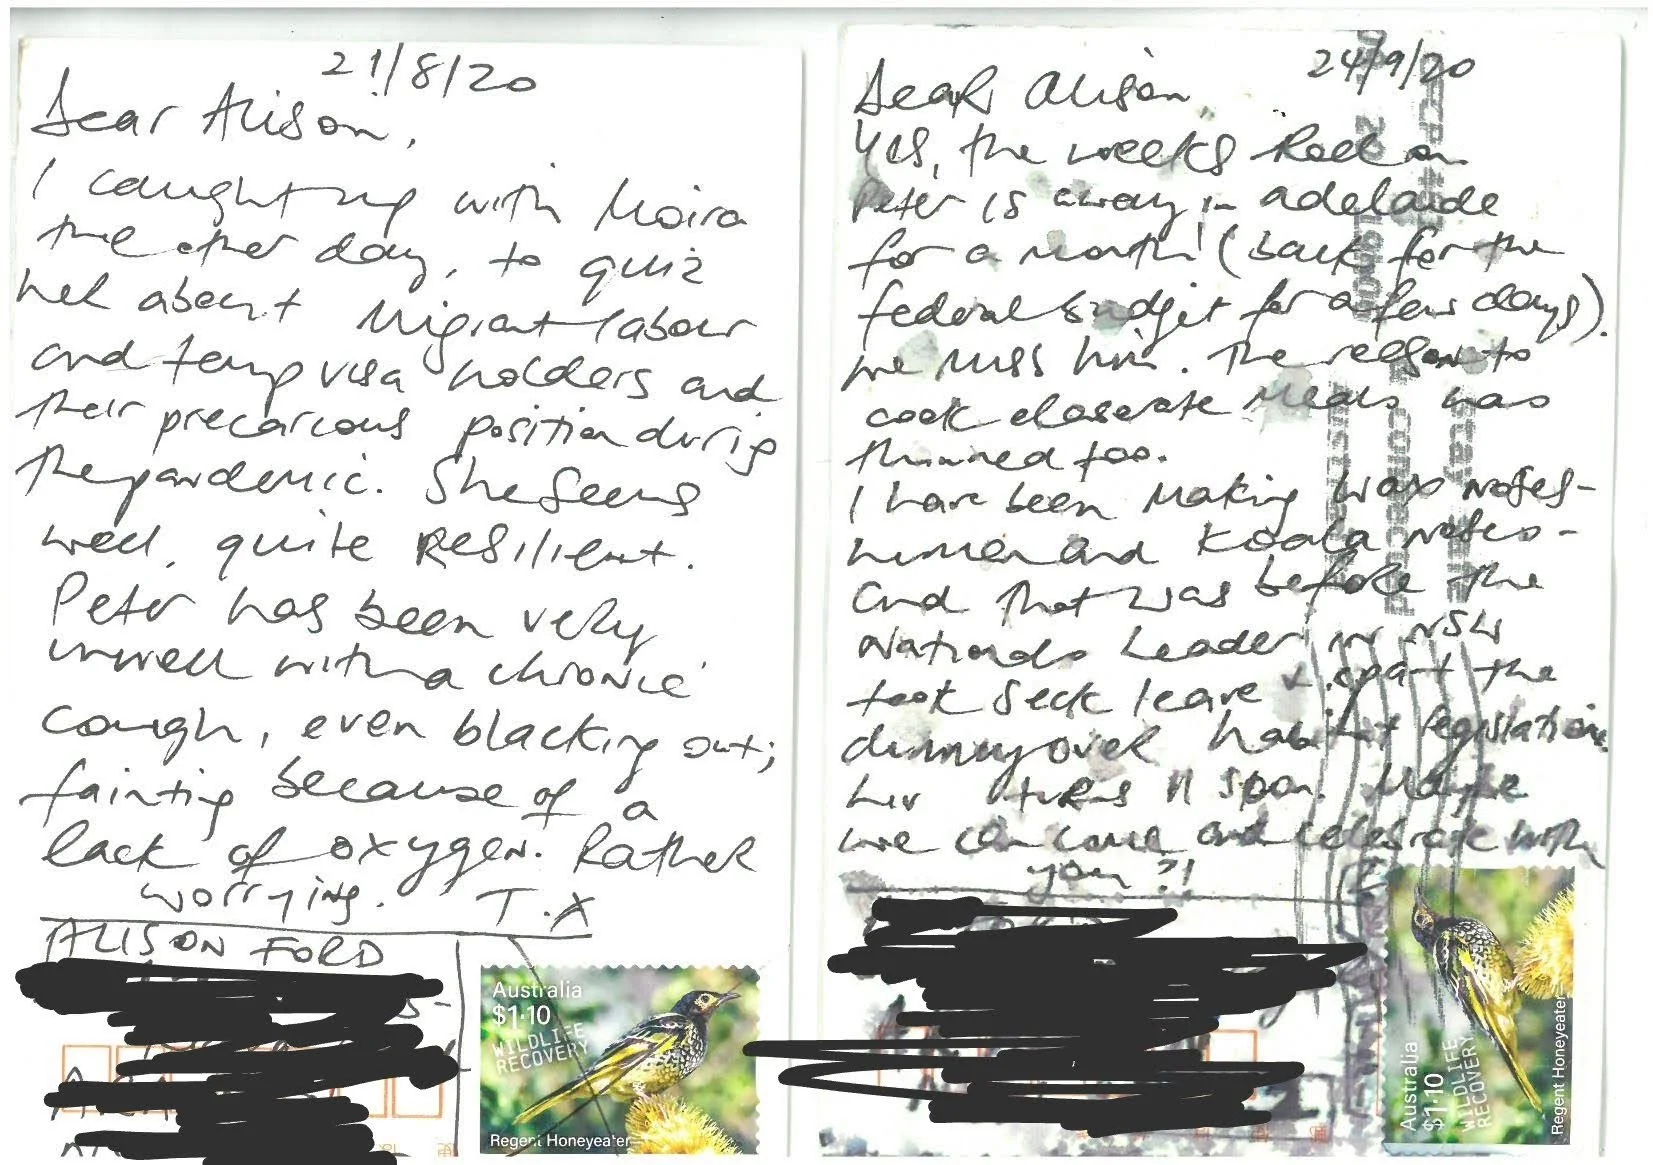 21/8/20
Dear Alison,
I caught up with Moira
the other day, to quiz
her about Migrant labour
and temp visa holders and
their precarious position during
the pandemic. She seems
well, quite RESilient.
Peter has been very
unwell with a chronic
cough, even blacking out;
fainting because of a
lack of oxygen. Rather
worrying. T.X
ALISON FORD
Australia
$1.10
WILDLIFE
RECOVERY
Regent Honeyeater
24/9/20
Dear Alison
Yes, the weeks Roll on
Peter is away in adelaide
for a month! (back for the
federal budget for a few days).
we miss him. The reason to
cook elaborate meals has
thinned too.
I have been Making wax noses -
human and Koala noses -
and that was before the
Nationals Leader in NSW
took sick leave & spat the
dummy over habitat legislation
hiv turns 11 soon. Maybe
we can come and celebrate with
you?!
Australia
$1.10
WILDLIFE
RECOVERY
Regent Honeyeater